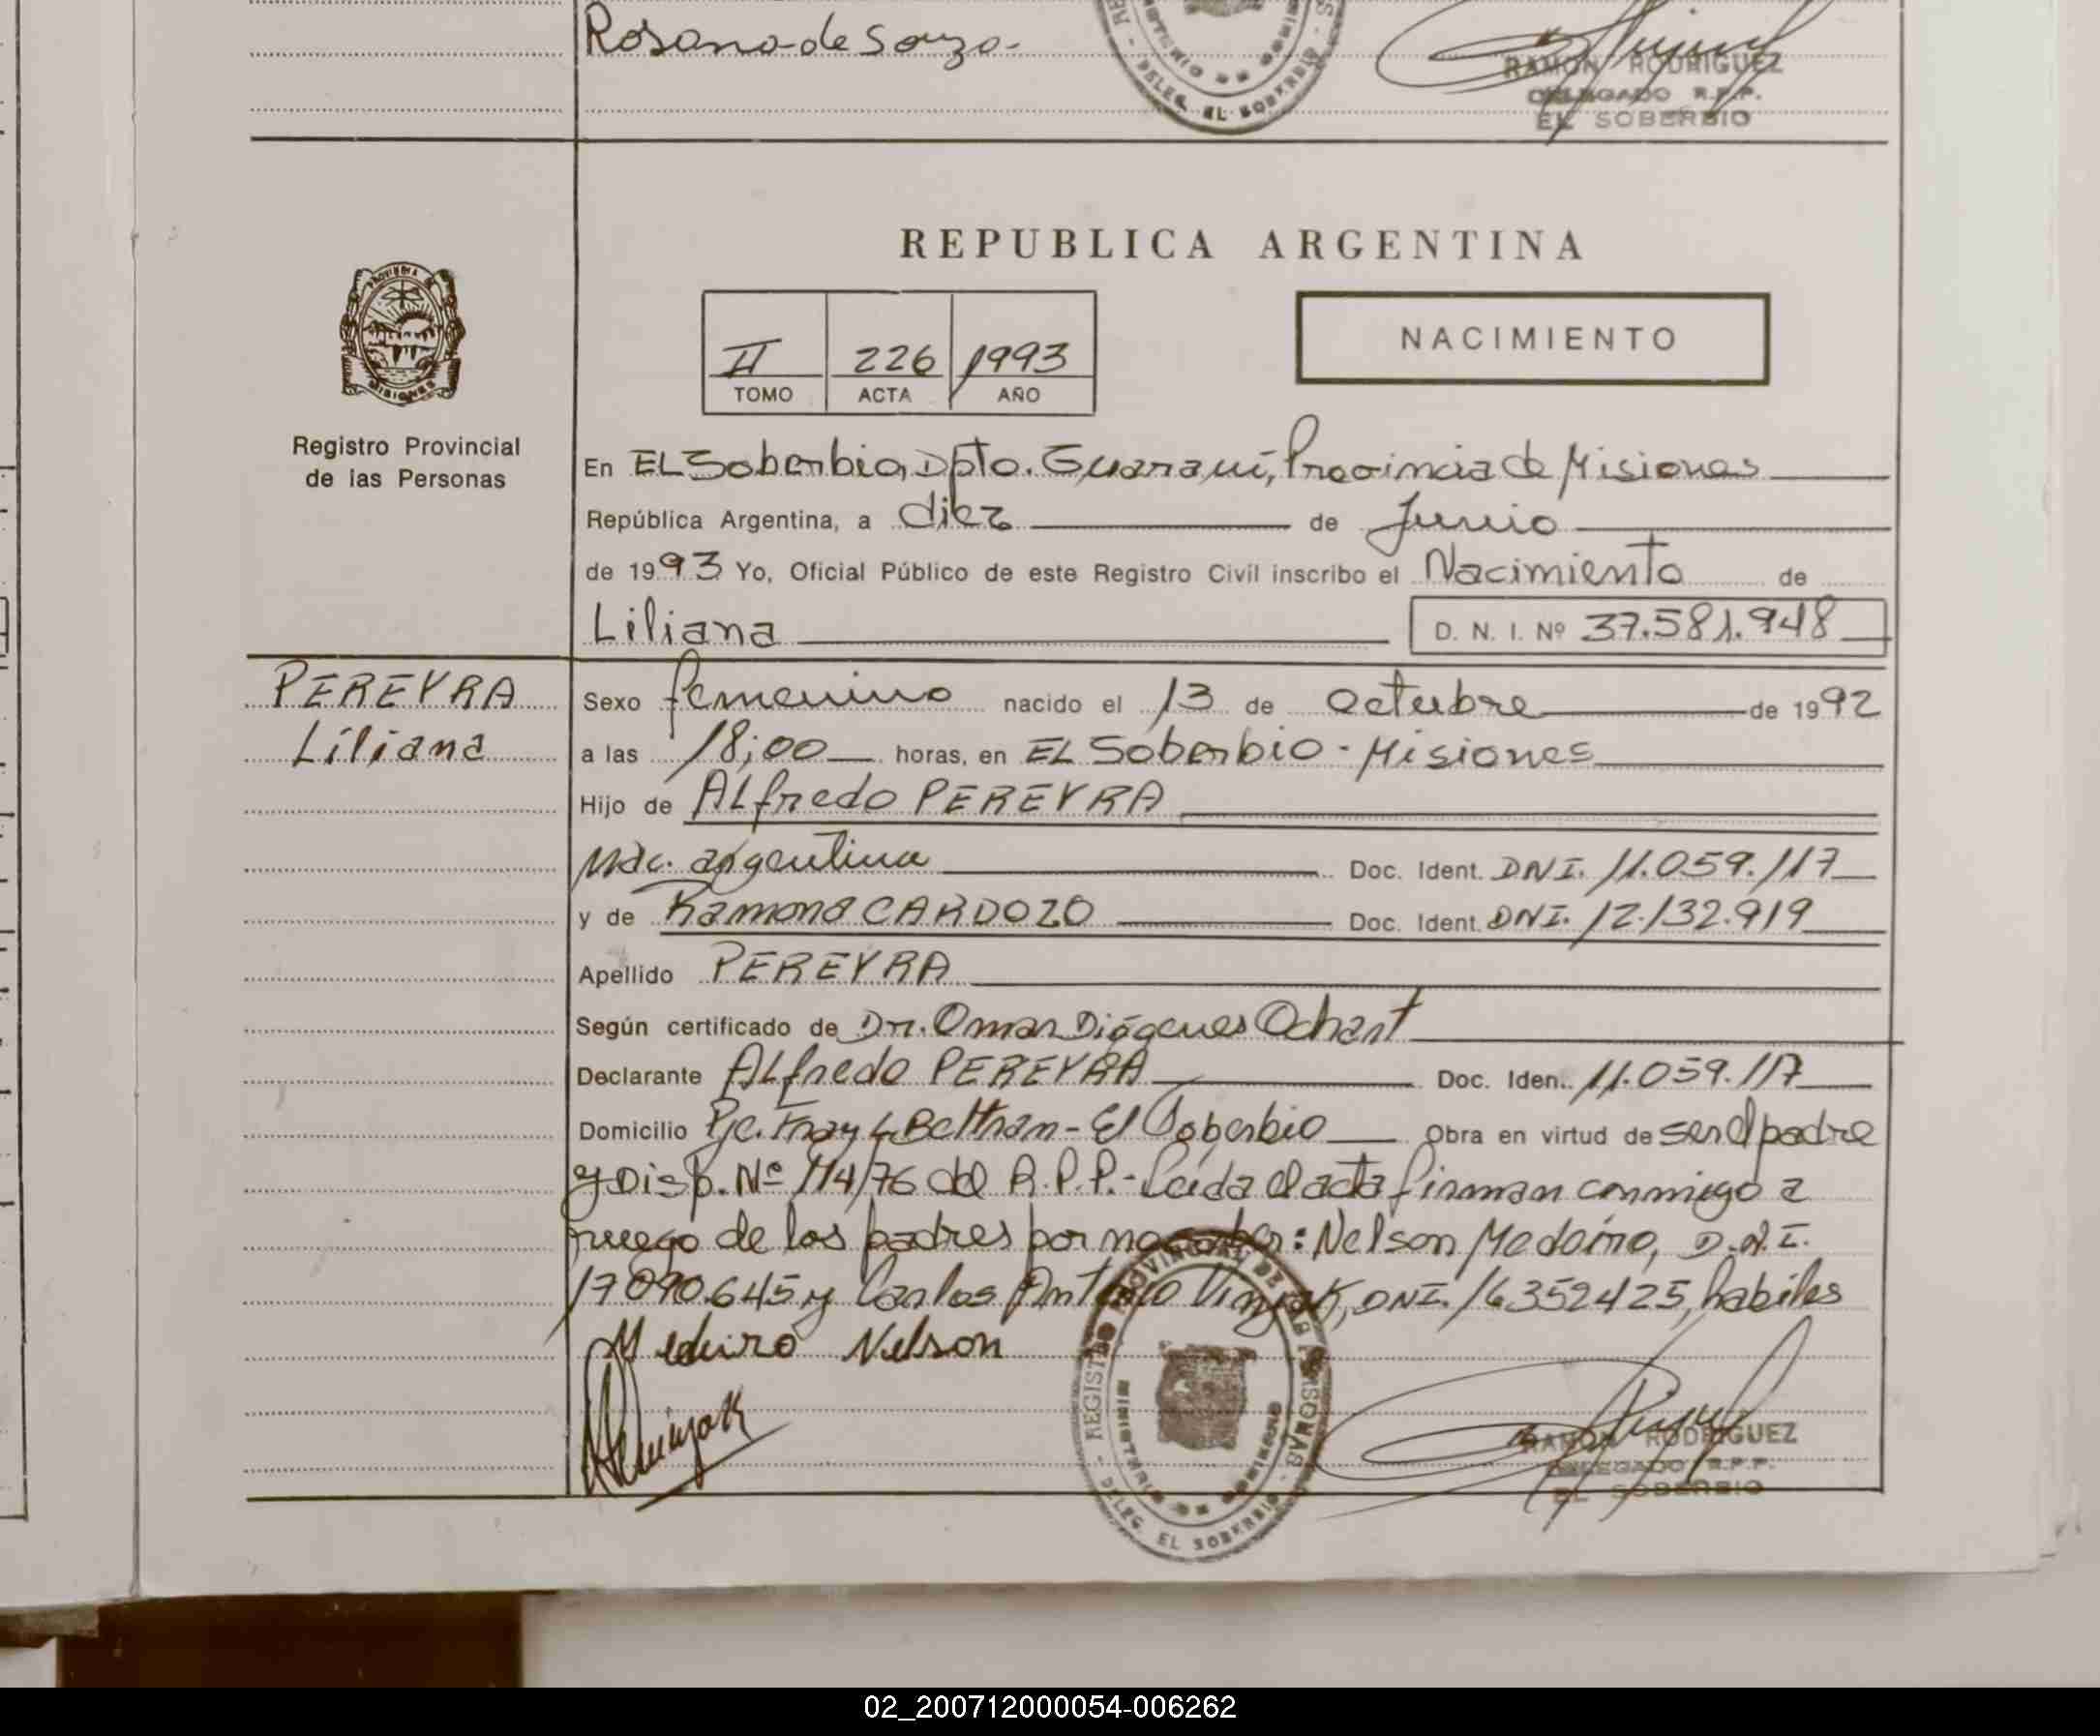 Rosana de Souza-
RAMON RODRIGUEZ
DELEGADO R.P.P.
EL SOBERBIO
DELEG. EL SOBERBIO
REPUBLICA ARGENTINA
II 226 1993
TOMO ACTA AÑO
NACIMIENTO
PROVINCIA DE MISIONES
Registro Provincial
de las Personas
En EL Soberbio, Dpto. Guaraní, Provincia de Misiones
República Argentina, a diez de Junio
de 1993 Yo, Oficial Público de este Registro Civil inscribo el Nacimiento de
Liliana D. N. I. Nº 37.581.948
PEREYRA
Liliana
Sexo femenino nacido el 13 de Octubre de 1992
a las 18;00 horas, en EL Soberbio - Misiones
Hijo de ALfredo PEREYRA
Nac. argentina Doc. Ident. DNI. 11.059.117
y de Ramona CARDOZO Doc. Ident. DNI. 12.132.919
Apellido PEREYRA
Según certificado de Dr. Omar Diógenes Ochant
Declarante ALfredo PEREYRA Doc. Iden.. 11.059.117
Domicilio Pje. Fray L. Beltran - El Soberbio Obra en virtud de ser el padre
y Disp. Nº 114/76 del R.P.P.- Leída el acta firman conmigo a
ruego de los padres por no saber: Nelson Medeiro, D.N.I.
17090.645 y Carlos Antonio DNI. 16352425, habiles
Medeiro Nelson
REGISTRO PROVINCIAL DE LAS PERSONAS
MINISTERIO DE GOBIERNO
DELEG. EL SOBERBIO
RAMON RODRIGUEZ
DELEGADO R.P.P.
EL SOBERBIO
02_200712000054-006262